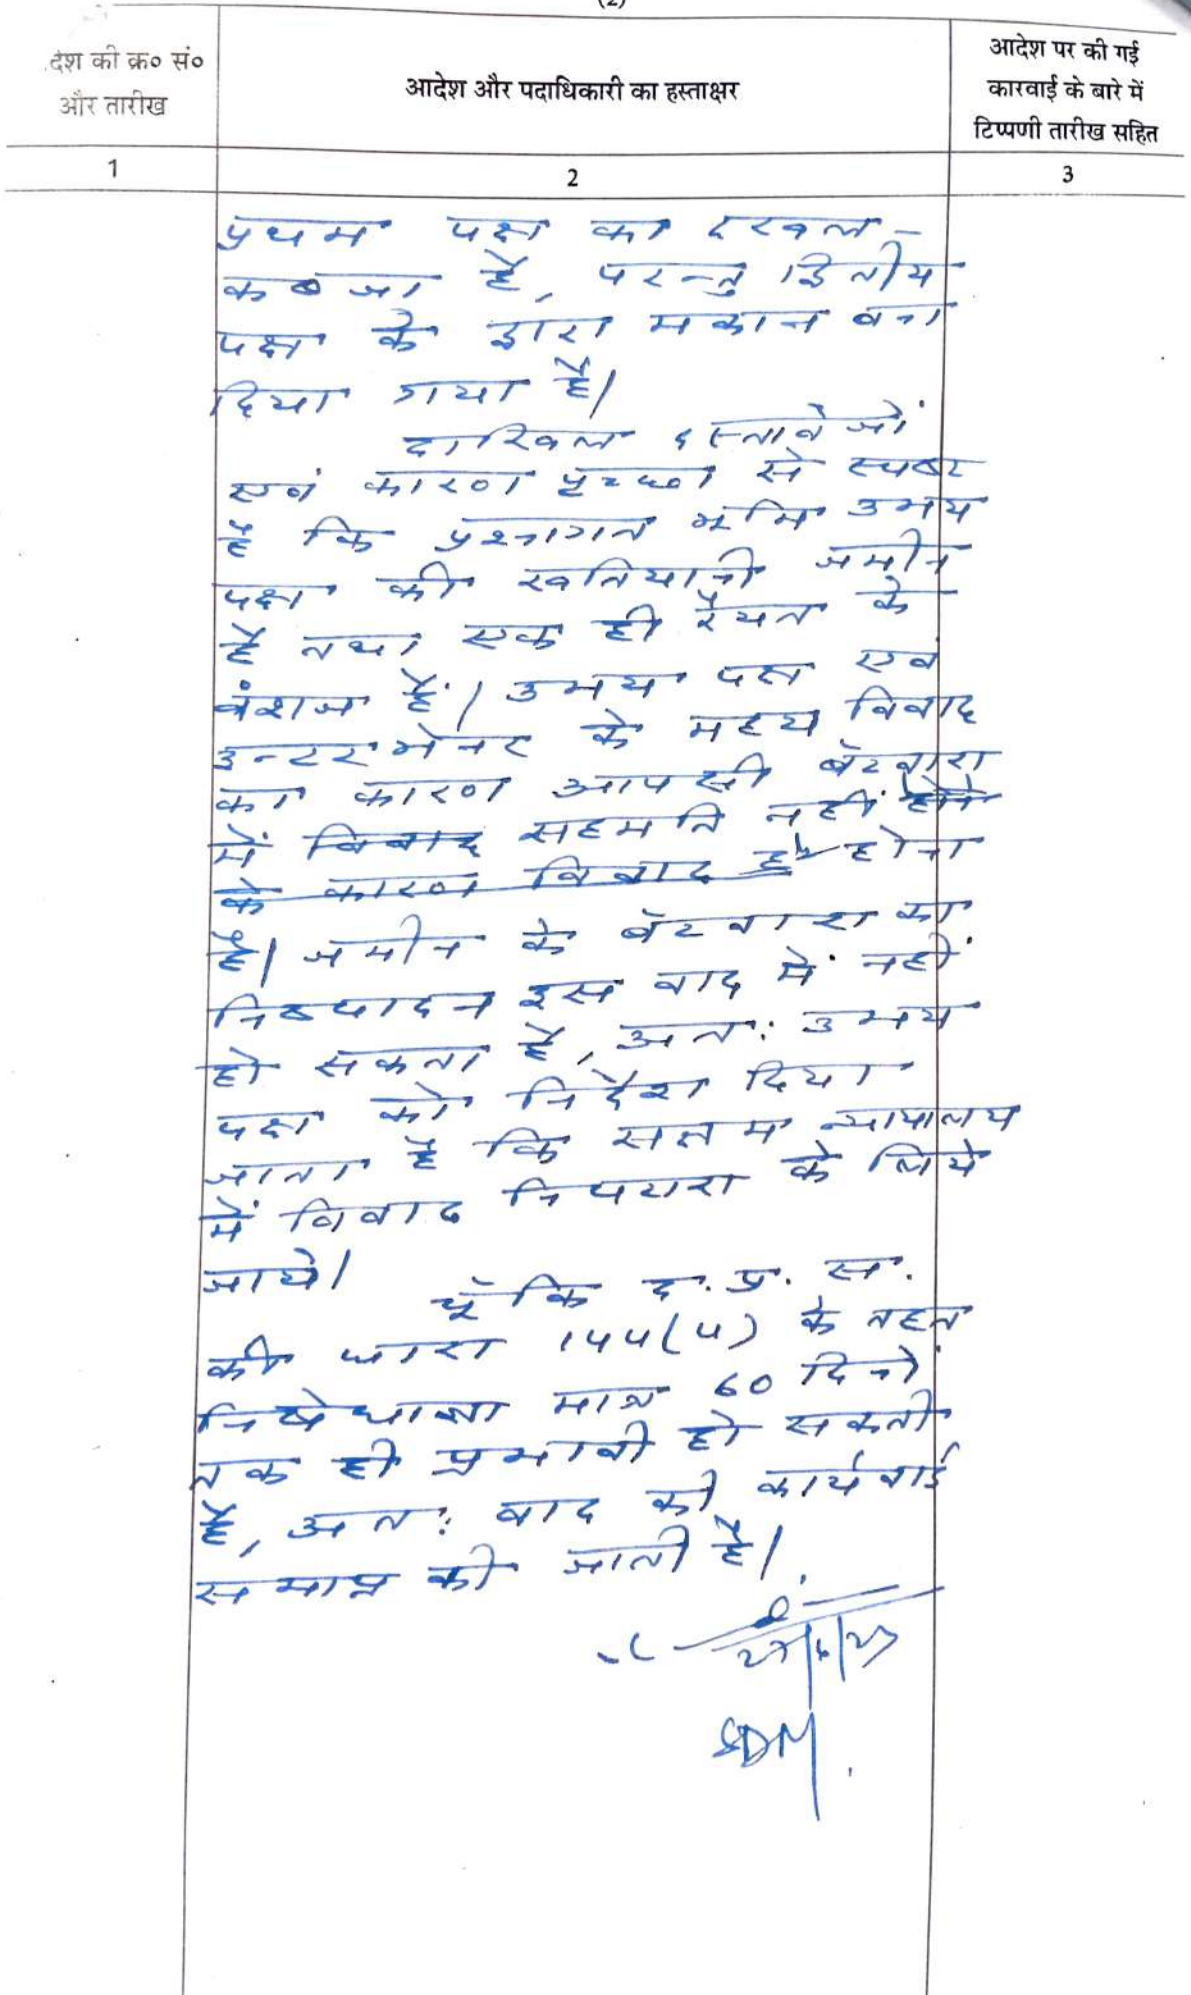 (2)
देश की क्र० सं०
और तारीख
आदेश और पदाधिकारी का हस्ताक्षर
आदेश पर की गई
कारवाई के बारे में
टिप्पणी तारीख सहित
1
2
3
प्रथम पक्ष का दखल-
कब्जा है, परन्तु द्वितीय
पक्ष के द्वारा मकान बना
दिया गया है।
दाखिल दस्तावेजों
एवं कारण पृच्छा से स्पष्ट
है कि प्रश्नगत भूमि उभय
पक्ष की खतियानी जमीन
है तथा एक ही रैयत के
वंशज हैं। उभय पक्ष एवं
इन्टरभेनर के मध्य विवाद
का कारण आपसी बँटवारा
में विवाद सहमति नहीं होने
के कारण विवाद है होना
है। जमीन के बँटवारा का
निष्पादन इस वाद में नहीं
हो सकता है, अतः उभय
पक्ष को निर्देश दिया
जाता है कि सक्षम न्यायालय
में विवाद निपटारा के लिये
जाये।
चूँकि द.प्र.स.
की धारा 144(4) के तहत
निषेधाज्ञा मात्र 60 दिनों
तक ही प्रभावी हो सकती
है, अतः वाद की कार्यवाई
समाप्त की जाती है।
SDM.